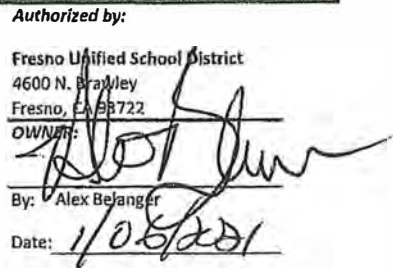 Authorized by:
Fresno Unified School District
4600 N. Brawley
Fresno, CA 93722
OWNER:
By: Alex Belanger
Date: